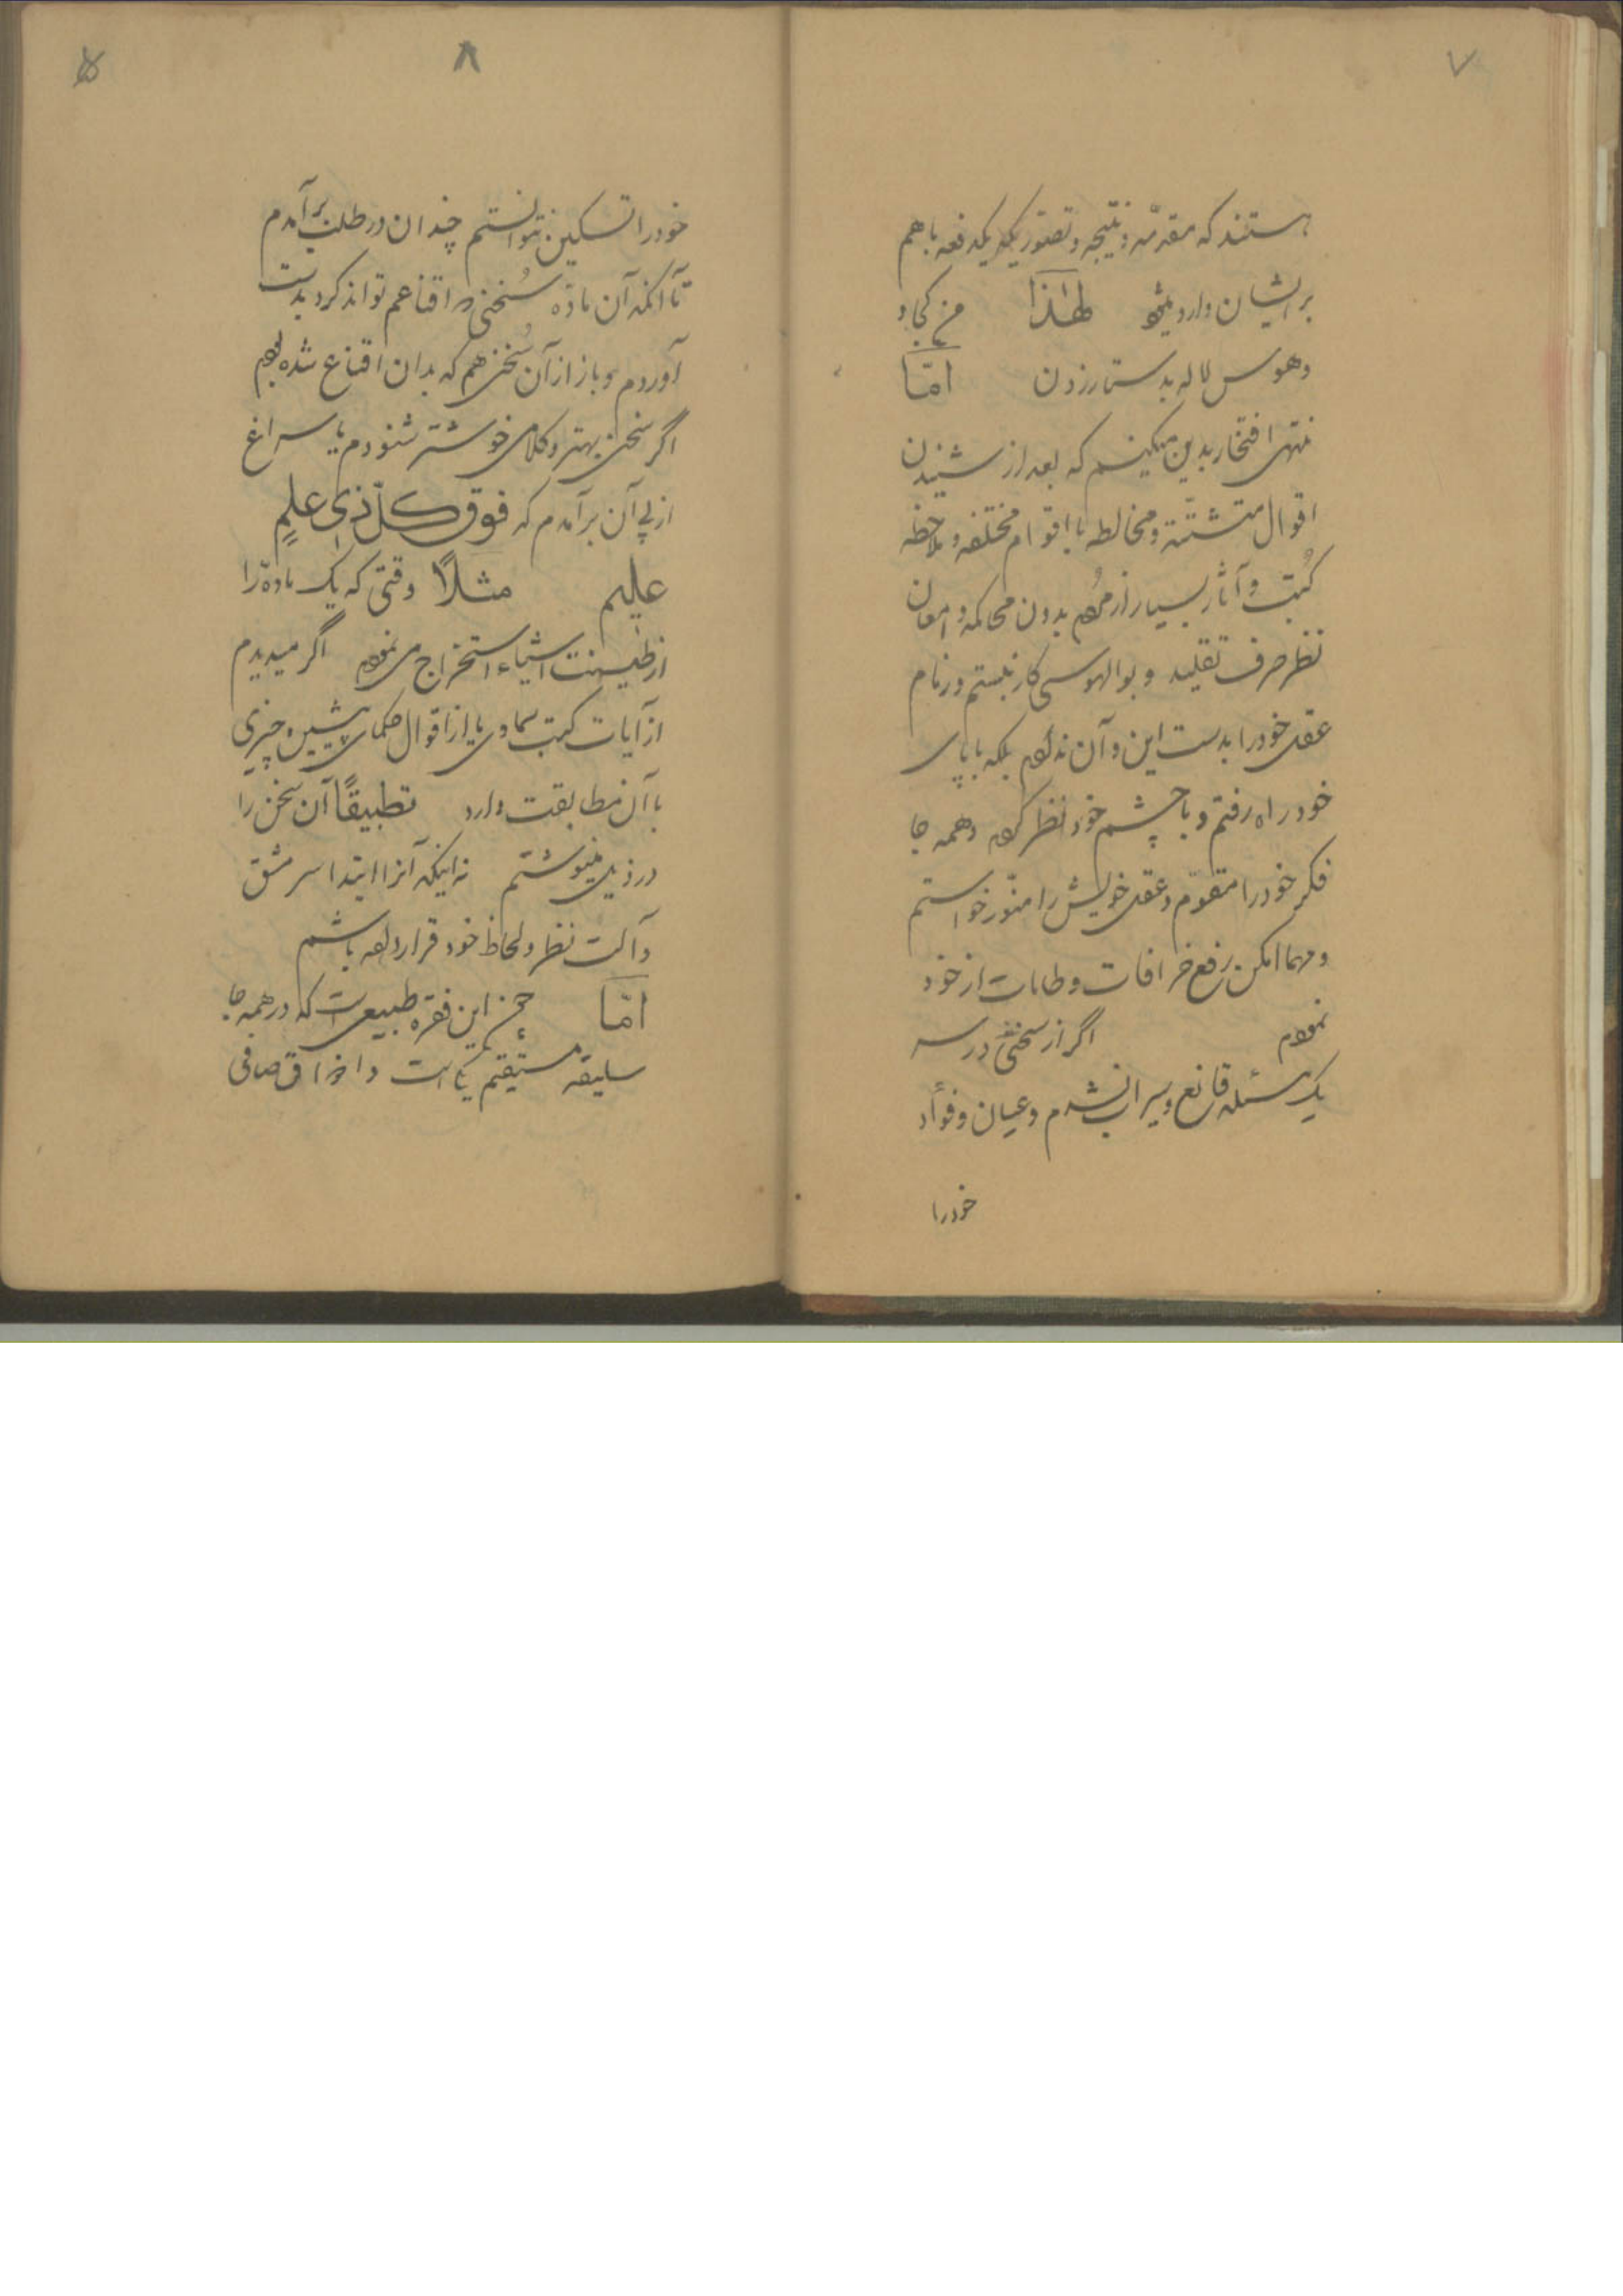 ۷
هستند که مقدّمه و نتیجه و تصوّر یکدفعه باهم
بر ایشان وارد میشود لهٰذا من کجا و
و هوس لاله بدستار زدن امّا
منتهی افتخار بدین میکنم که بعد از شنیدن
اقوال متشتّته و مخالطه با اقوام مختلفه و ملاحظه
کُتب و آثار بسیار از مردم بدون محاکمه و امعان
نظر صرف تقلید و بوالهوسی کار نبستم و زمام
عقل خود را بدست این و آن ندادم بلکه با پای
خود راه رفتم و با چشم خود نظر کرده و همه جا
فکر خود را مقوّم و عقل خویش را منوّر خواستم
و مهما امکن رفع خرافات و طامات از خود
نمودم اگر از سخنی در سر
یک مسئله قانع و سیراب نشدم و عیان و فوأد
خود را
۸
خود را تسکین نتوانستم چندان در طلب بر آمدم
تا آنکه آن ماده سُخنی که اقناعم تواند کرد بدست
آوردم و باز از آن سُخن هم که بدان اقناع شده بودم
اگر سخن بهتر و کلامی خوشتر شنودم با سراغ
از پی آن برآمدم که فوق کلّ ذی علمٍ
علیم مثلاً وقتی که یک ماده را
از طینت اشیاء استخراج می نمودم اگر میدیدم
از آیات کتب سماوی یا از اقوال حکمای پیشین چیزی
با آن مطابقت دارد تطبیقاً آن سخن را
در ذیل مینوشتم نه اینکه آنرا ابتدا سر مشق
و آلت نظر و لحاظ خود قرار داده باشم
امّا این فقره طبیعی است که در همه جا
سلیقه مستقیم یکی است و اذواق صافی